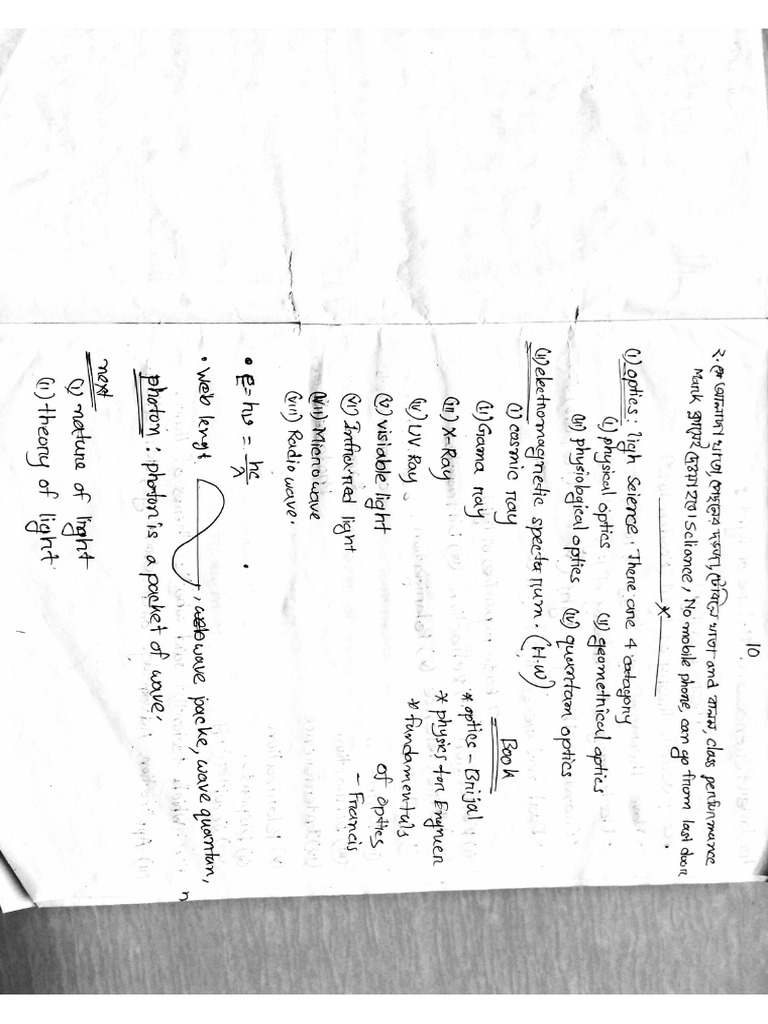 10
২. রোল খাতা and কলম, class performance
Mark দেওয়া হবে। Scliance, No mobile phone, can go from last door
(i) optics: ligh Science. There are 4 catagony
(i) physical optics (ii) geometrical optics
(iii) physiological optics (iv) quantam optics
(ii) electromagnetic spectarum. (H.W)
(i) cosmic ray
(ii) Gama ray
(iii) X-Ray
(iv) UV Ray.
(v) visiable light
(vi) Infrared light
(vii) Micro wave
(viii) Radio wave.
Book
* optics - Brijal
* physics for Engineer
* fundamentals
of optics
- Francis
• E = hν = hc/λ
• web lengt , wave packe, wave quantum,
photon: photon is a packet of wave.
next
(i) nature of linght
(ii) theory of light.